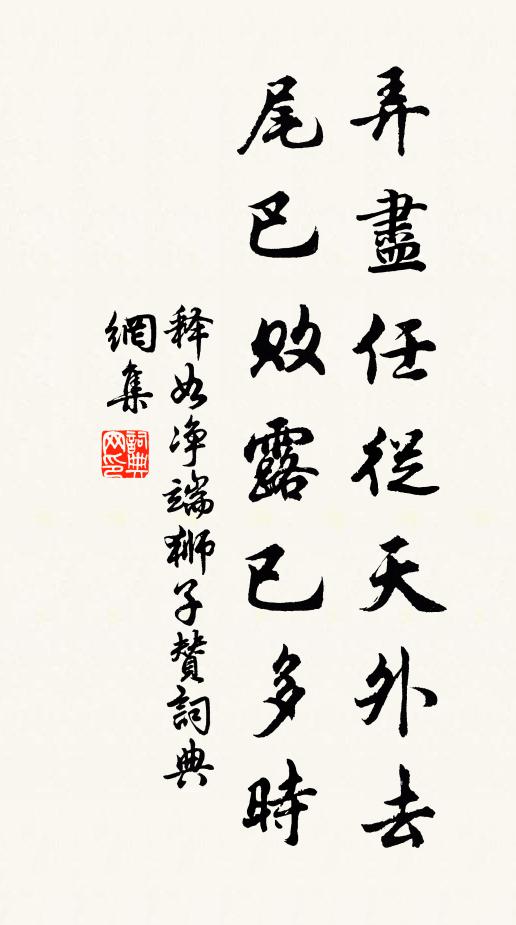 弄盡任從天外去
尾巴敗露已多時
释如净端獅子贊詞典
網集
詞典網印